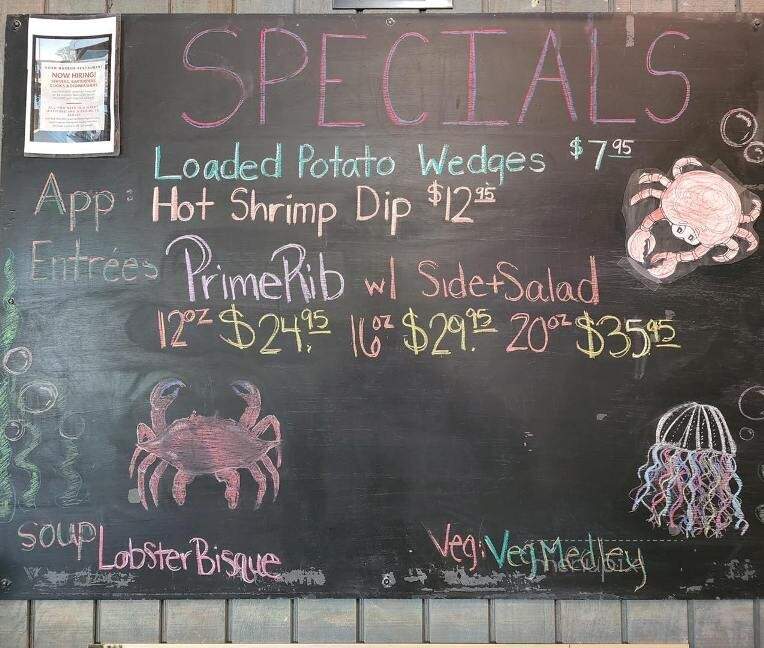 NOW HIRING!
SPECIALS
Loaded Potato Wedges $7.95
App: Hot Shrimp Dip $12.95
Entrées Prime Rib w/ Side + Salad
12oz $24.95 16oz $29.95 20oz $35.95
Soup Lobster Bisque
Veg: Veg Medley